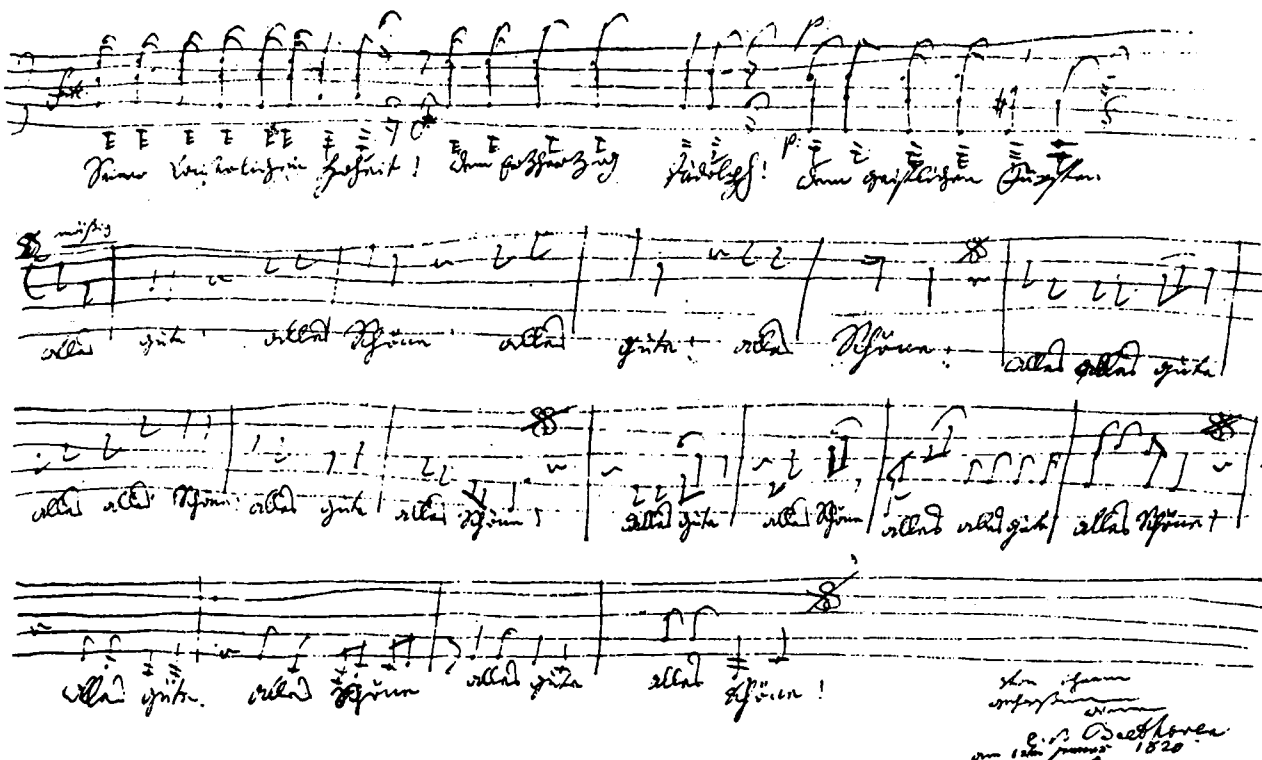 p
Seiner Kaiserlichen Hoheit! dem Erzherzog Rudolph! p: dem geistlichen Fürsten.
mäßig
alles gute! alles Schöne alles gute! alles Schöne! alles alles gute
alles alles Schöne alles gute alles Schöne! alles gute alles Schöne alles alles gute alles Schöne!
alles gute. alles Schöne alles gute alles Schöne!
von ihrem
Beethoven
am 1820